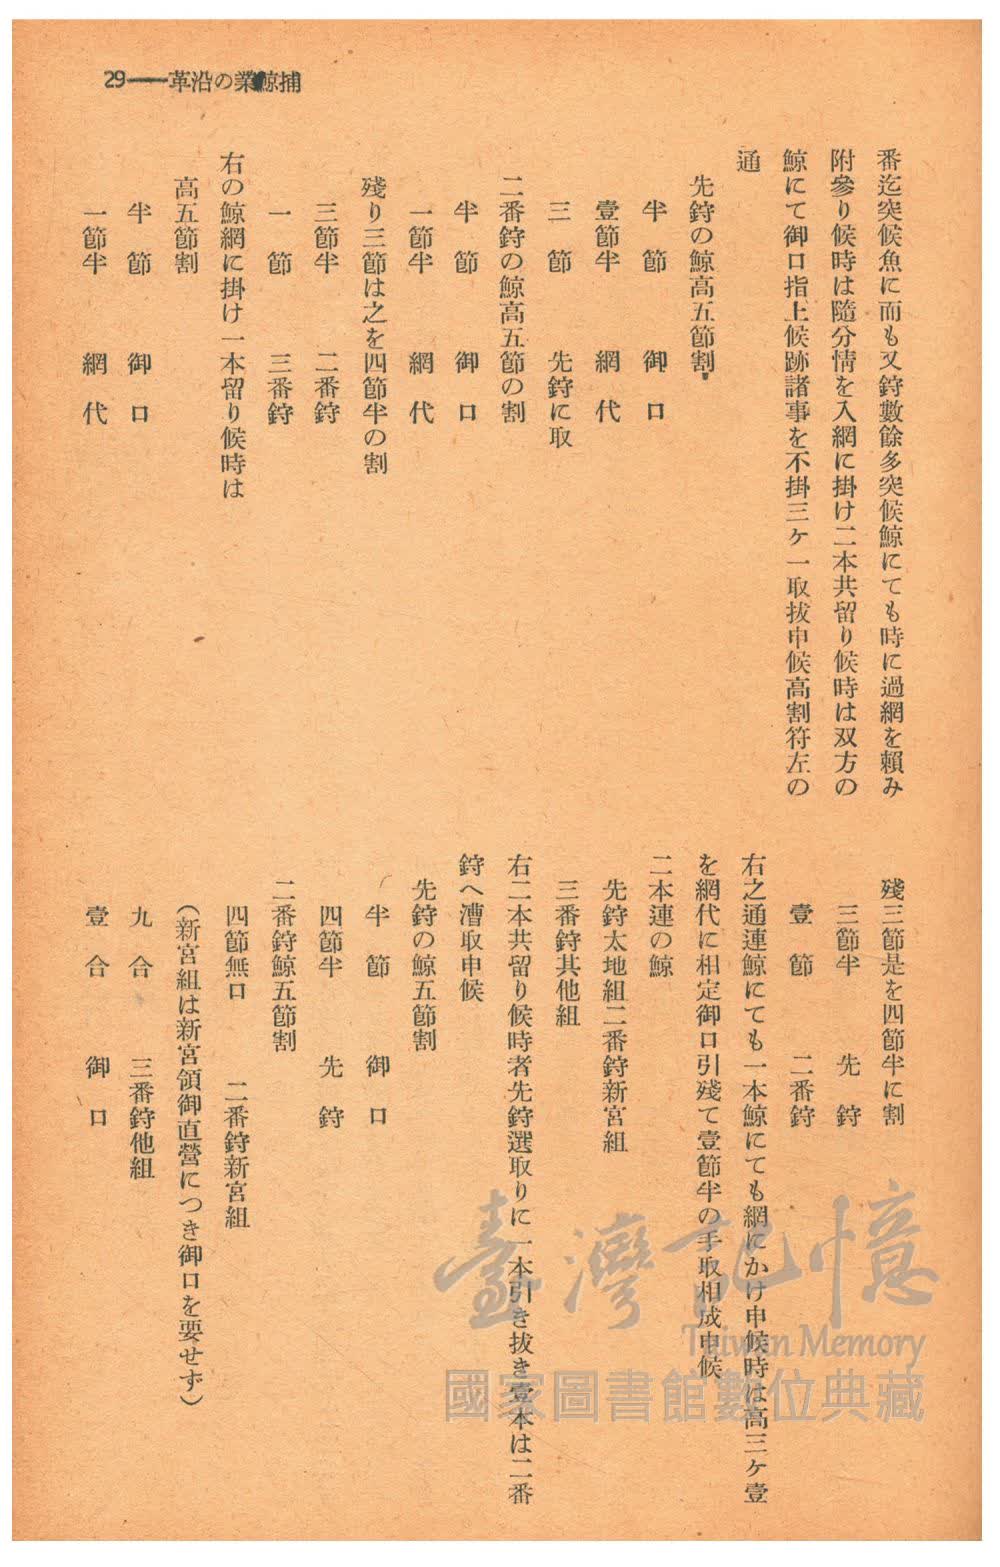 29——革沿の業鯨捕
番迄突候魚に而も又銛數餘多突候鯨にても時に過網を賴み
附參り候時は隨分情を入網に掛け二本共留り候時は双方の
鯨にて御口指上候跡諸事を不掛三ヶ一取拔申候高割符左の
通
先銛の鯨高五節割
半節　御口
壹節半　網代
三節　先銛に取
二番銛の鯨高五節の割
半節　御口
一節半　網代
殘り三節は之を四節半の割
三節半　二番銛
一節　三番銛
右の鯨網に掛け一本留り候時は
高五節割
半節　御口
一節半　網代
殘三節是を四節半に割
三節半　先銛
壹節　二番銛
右之通連鯨にても一本鯨にても網にかけ申候時は高三ヶ壹
を網代に相定御口引殘て壹節半の手取相成申候
二本連の鯨
先銛太地組二番銛新宮組
三番銛其他組
右二本共留り候時者先銛選取りに一本引き拔き壹本は二番
銛へ漕取申候
先銛の鯨五節割
半節　御口
四節半　先銛
二番銛鯨五節割
四節無口　二番銛新宮組
(新宮組は新宮領御直營につき御口を要せず)
九合　三番銛他組
壹合　御口
臺灣記憶
Taiwan Memory
國家圖書館數位典藏